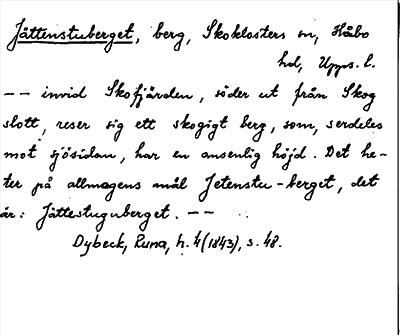 Jättenstuberget, berg, Skoklosters sn, Håbo
hd, Upps. l.
-- invid Skofjärden, söder ut från Skog
slott, reser sig ett skogigt berg, som, serdeles
mot sjösidan, har en ansenlig höjd. Det he-
ter på allmogens mål Jetenstu-berget, det
är: Jättestuguberget. --
Dybeck, Runa, h. 4 (1843), s. 48.